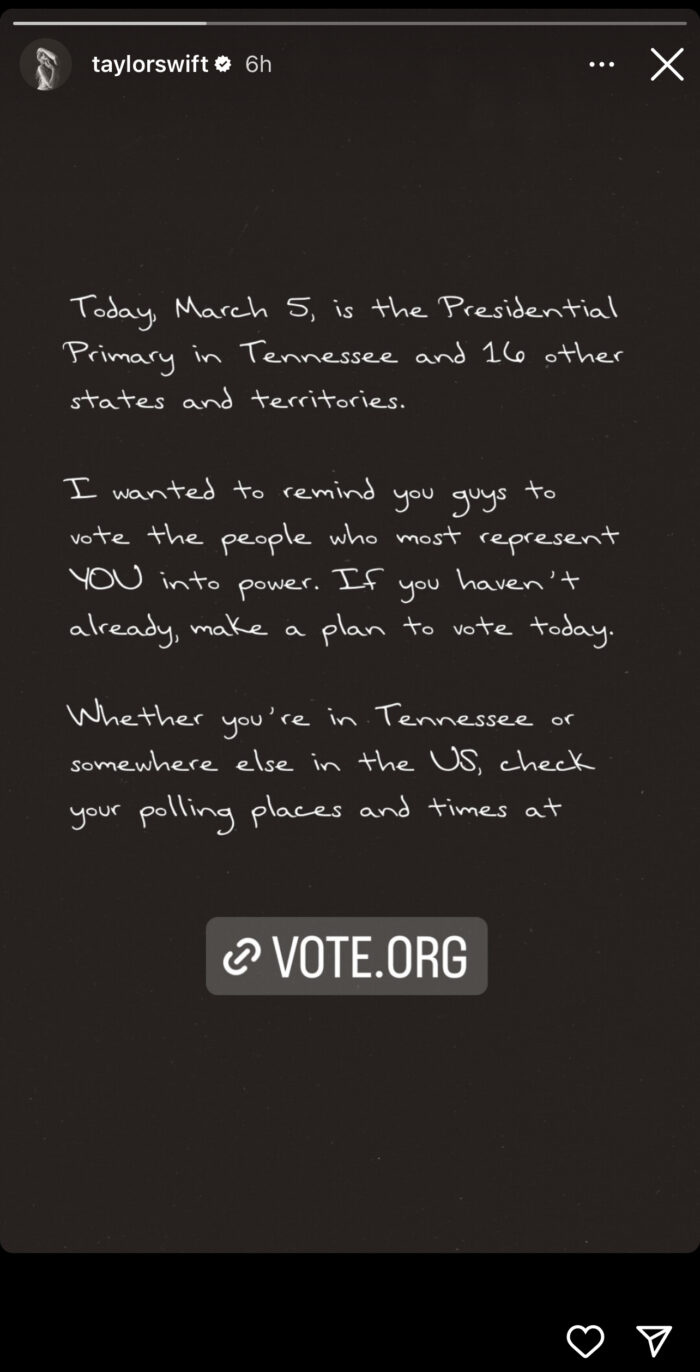 taylorswift 6h
Today, March 5, is the Presidential
Primary in Tennessee and 16 other
states and territories.
I wanted to remind you guys to
vote the people who most represent
YOU into power. If you haven't
already, make a plan to vote today.
Whether you're in Tennessee or
somewhere else in the US, check
your polling places and times at
VOTE.ORG